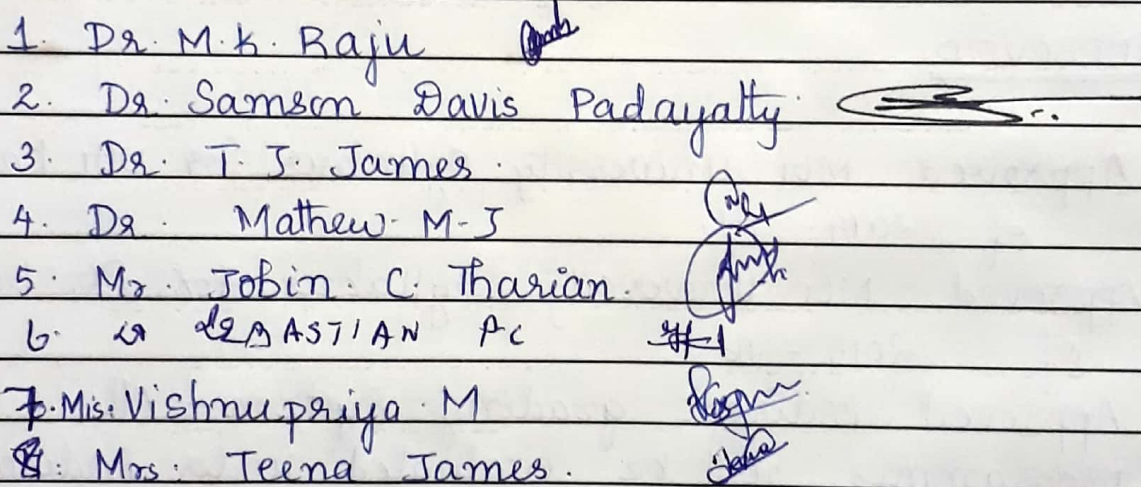 1. Dr. M. K. Raju
2. Dr. Samson Davis Padayatty
3. Dr. T J James.
4. Dr. Mathew M-J
5. Mr. Jobin. C. Tharian.
6. SEBASTIAN PC
7. Mis: Vishnupriya. M
8. Mrs: Teena James.